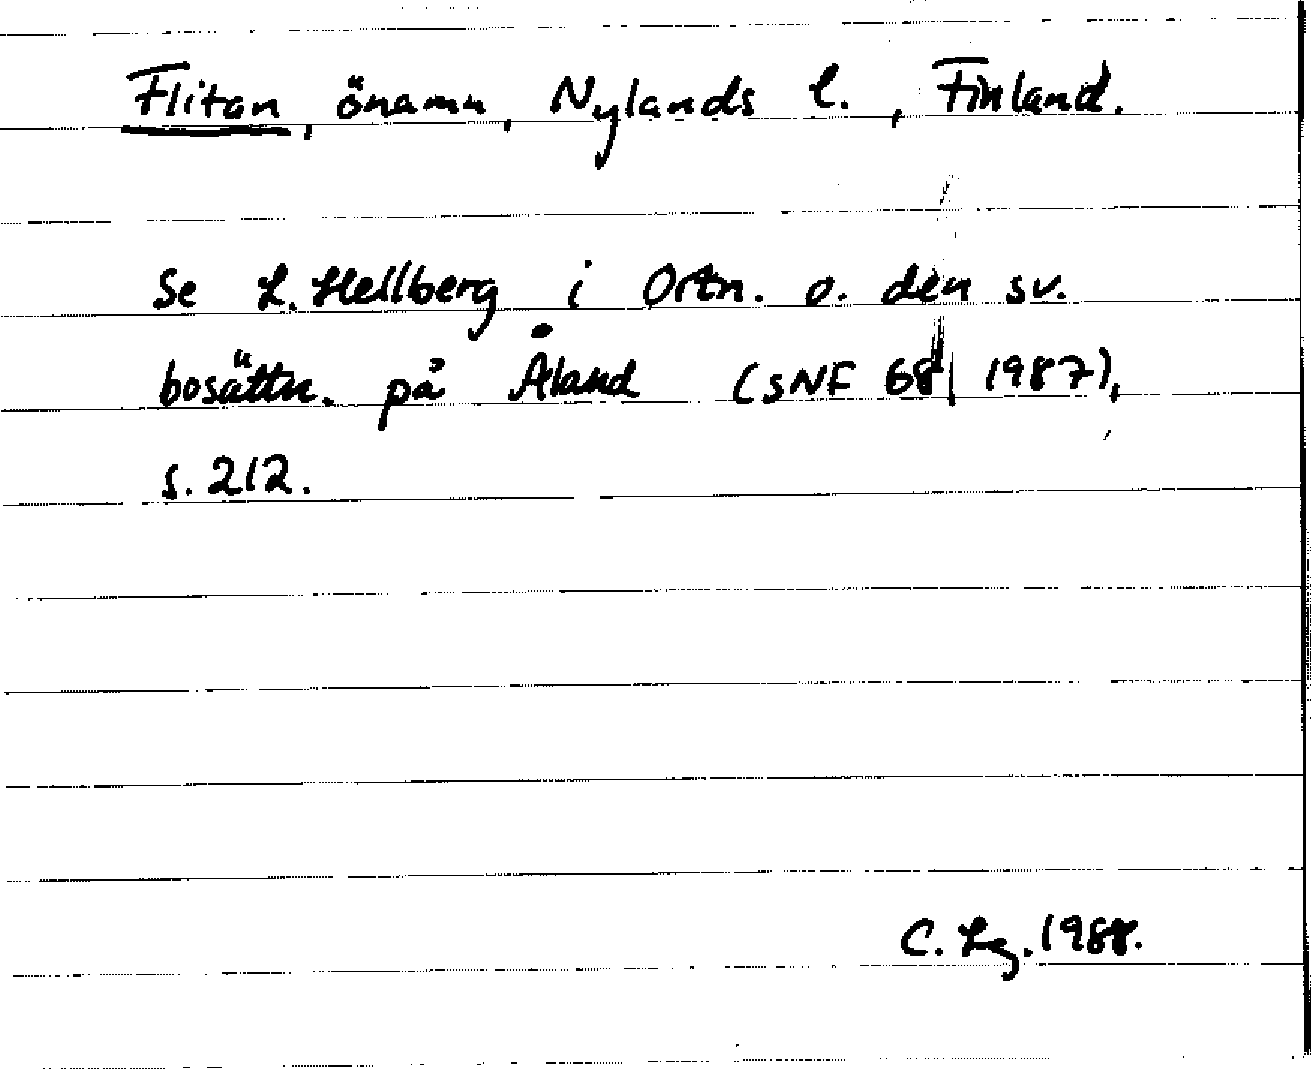 Flitan, önamn, Nylands l., Finland.
Se L. Hellberg i Ortn. o. den sv.
bosättn. på Åland (SNF 68, 1987),
s. 212.
C. Lg. 1988.